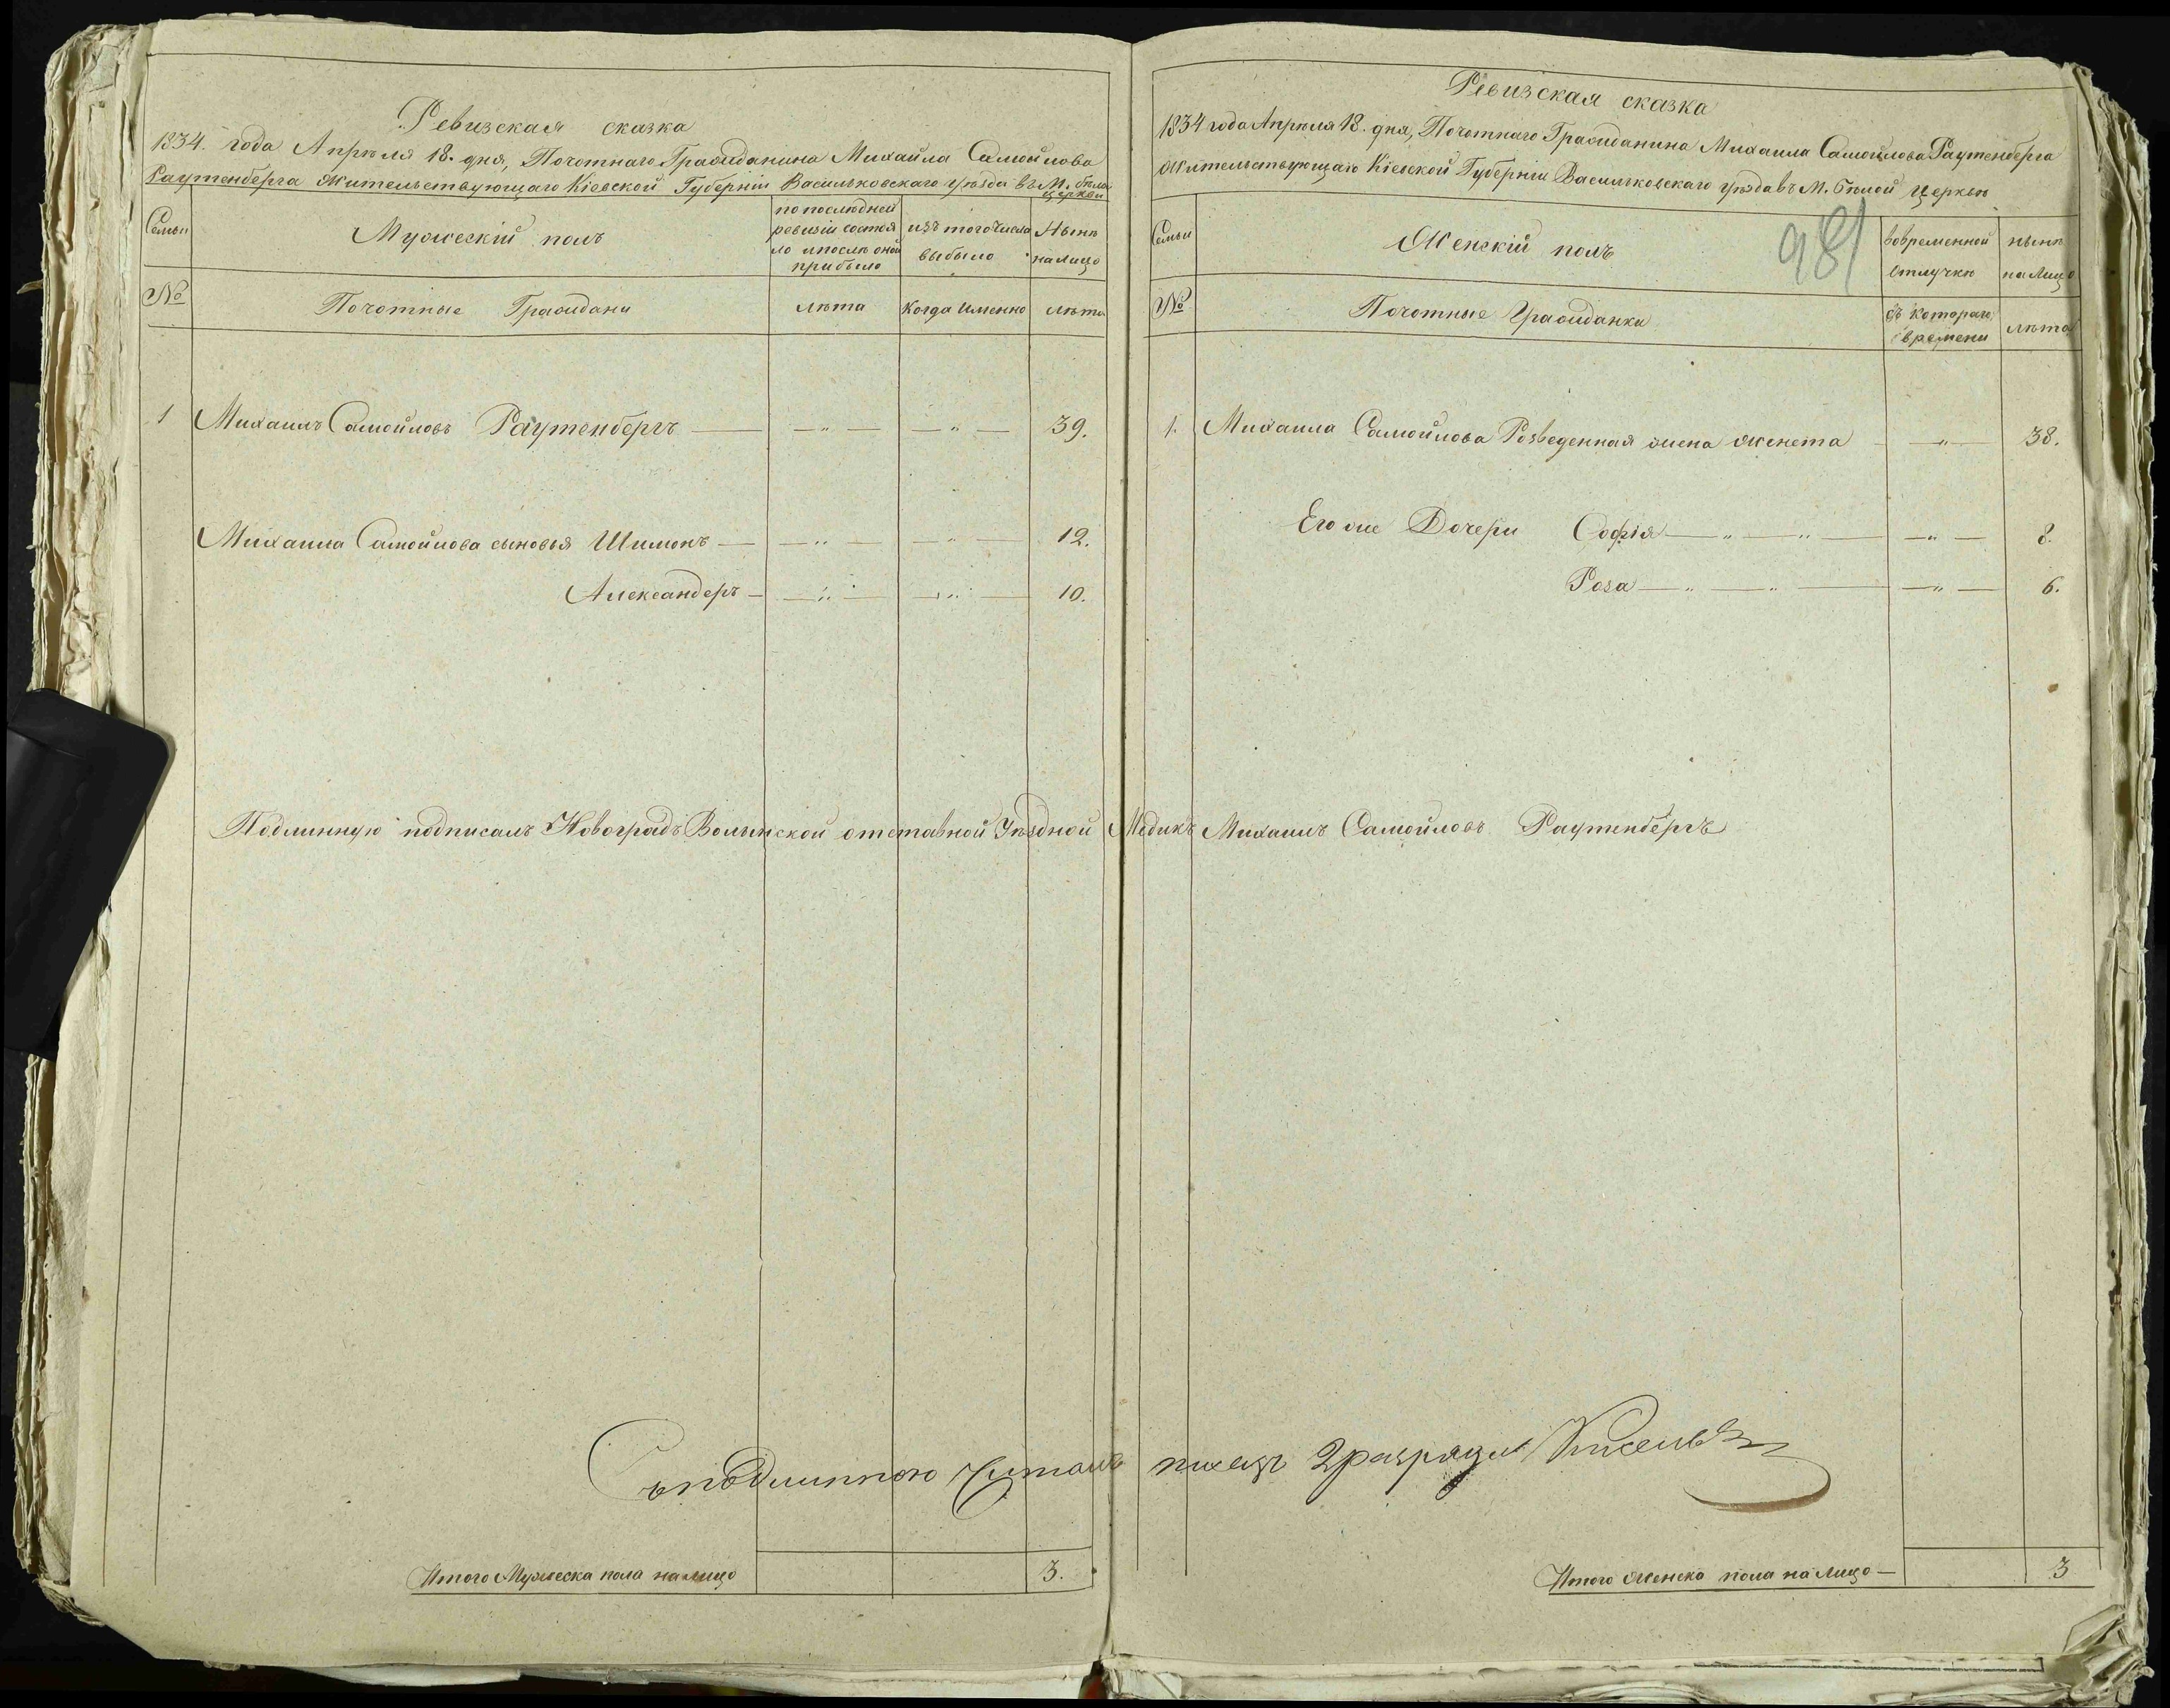 Ревизская сказка
1834. года Апрѣля 18. дня, Почотнаго Гражданина Михайла Самойлова
Раутенберга Жительствующаго Кіевской Губерніи Васильковскаго уѣзда въ М. бѣла
церкви
Семьи
Мужескій полъ
по послѣдней
ревизіи состоя
ло и послѣ оной
прибыло
изъ того числа
выбыло
Нынѣ
на лицо
№
Почотные Граждани
лѣта
Когда именно
лѣта
1 Михаилъ Самойловъ Раутенбергъ — — „ — — „ — 39.
Михаила Самойлова сыновья Шимонъ — — „ — — „ — 12.
Александеръ — — „ — — „ — 10.
Подлинную подписалъ Новоградъ Волынской отставной Уѣздной Медикъ Михаилъ Самойловъ Раутенбергъ
Съ подлинною Читалъ писецъ 2 разряда
Итого Мужеска пола на лицо
3.
Ревизская сказка
1834 года Апрѣля 18. дня, Почотнаго Гражданина Михаила Самойлова Раутенберга
Жительствующаго Кіевской Губерніи Васильковскаго уѣзда въ М. Бѣлой Церкьѣ
981
Семьи
Женскій полъ
вовременной
отлучкѣ
нынѣ
на Лицо
№
Почотные Гражданки
съ котораго
времени
лѣта
1. Михаила Самойлова Розведенная жена Женета — „ — 38.
Его же Дочери Софія — „ — „ — — „ — 8.
Роза — „ — „ — — „ — 6.
Итого Женска пола на Лицо —
3